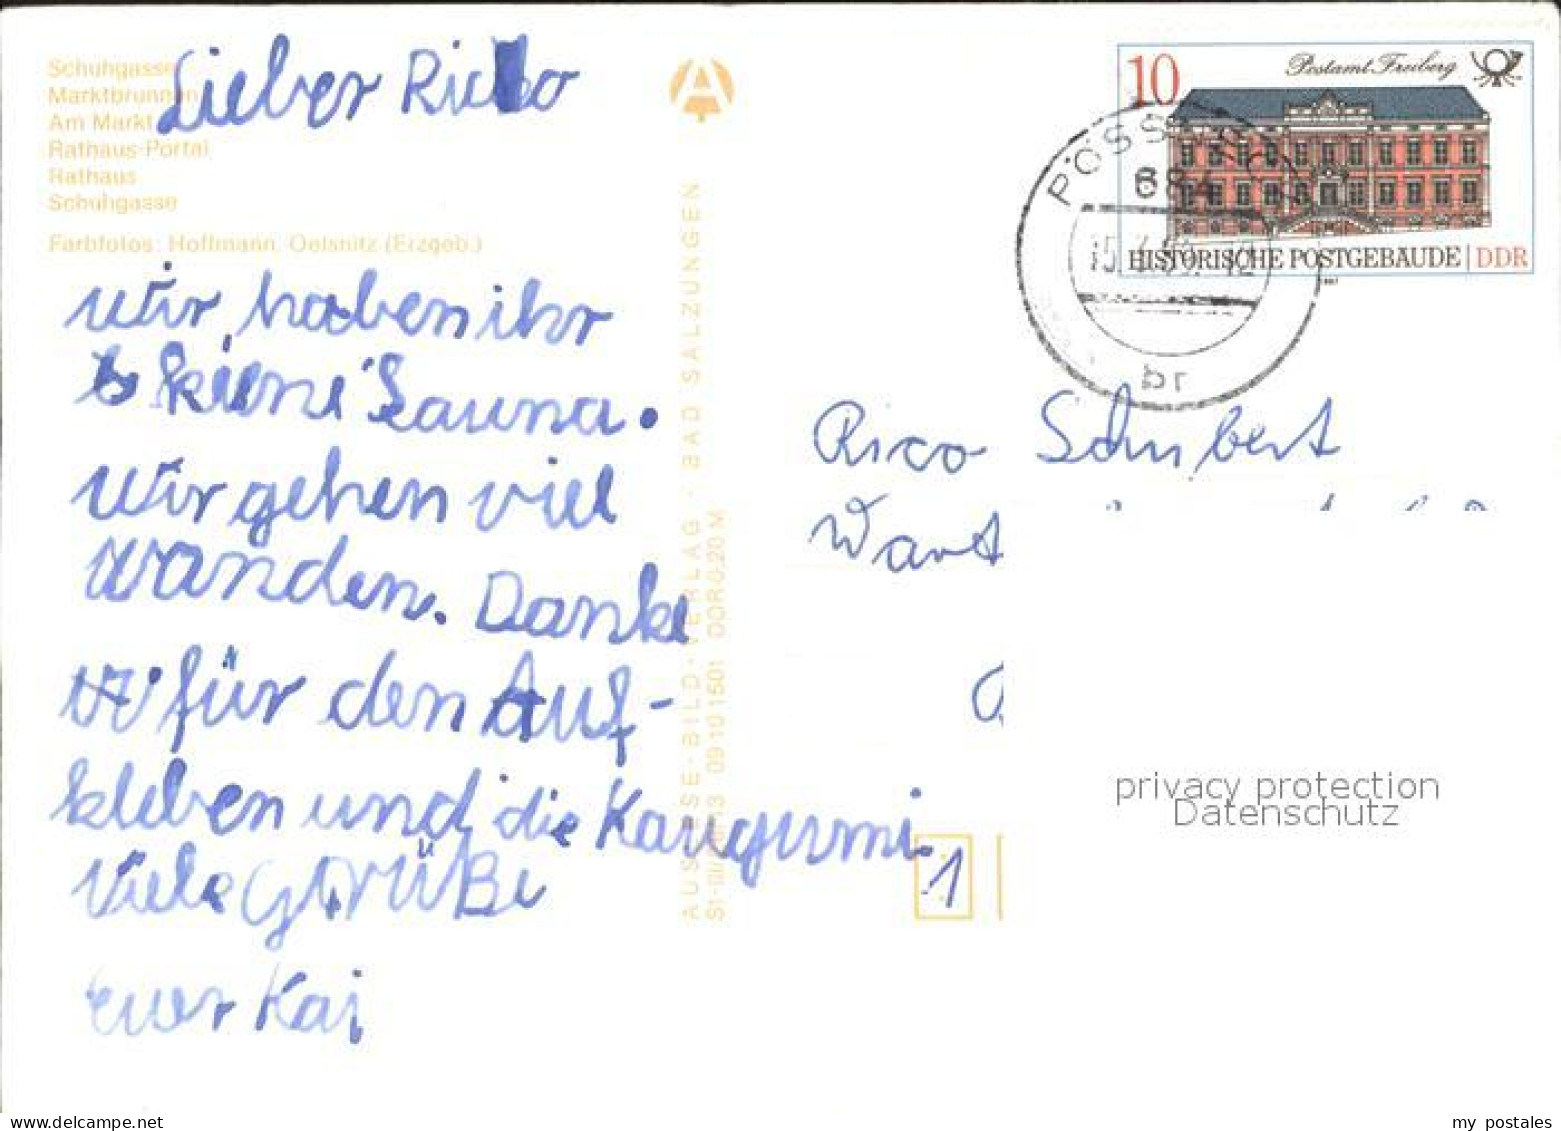 Schuhgasse
Marktbrunnen
Am Markt
Rathaus-Portal
Rathaus
Schuhgasse
Farbfotos: Hoffmann, Oelsnitz (Erzgeb.)
Lieber Rico
wir haben ihr
keine Sauna.
wir gehen viel
wanden. Danke
für den Auf-
kleben und die Kaugumi.
Viele Grüße
euer Kai
AUSLESE-BILD-VERLAG · BAD SALZUNGEN
09 10 1501 DDR 0,20 M
10
Postamt Freiberg
HISTORISCHE POSTGEBÄUDE | DDR
PÖSSNECK
684
br
Rico Schubert
Wart
1
privacy protection
Datenschutz
my postales